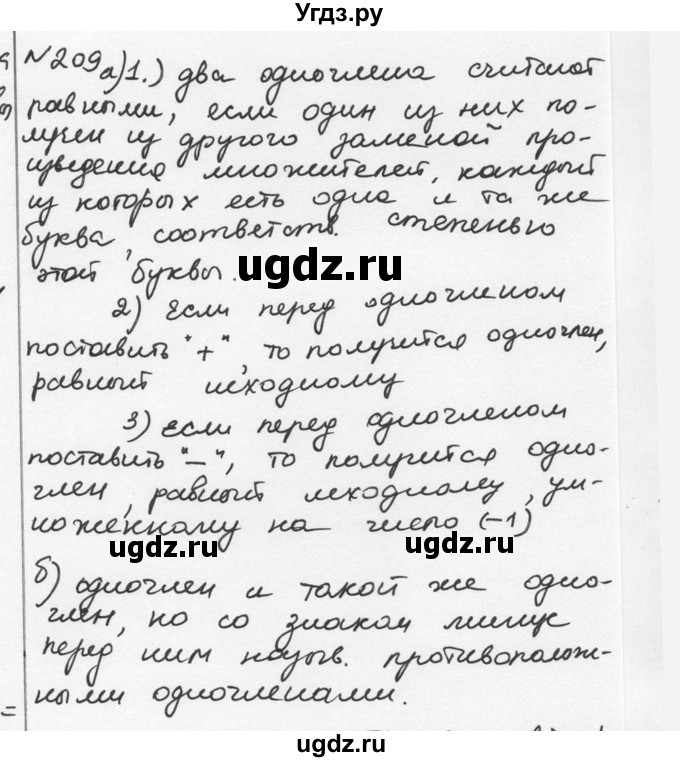 Угдз.ру
№209 а)1.) два одночлена считают
равными, если один из них по-
лучен из другого заменой про-
изведения множителей, каждый
из которых есть одна и та же
буква, соответств. степенью
этой буквы.
ugdz.ru
2) Если перед одночленом
поставить "+", то получится одночлен,
равный исходному
3) если перед одночленом
поставить "—", то получится одно-
член, равный исходному, ум-
ноженному на число (-1)
ugdz.ru ugdz.ru
б) одночлен и такой же одно-
член, но со знаком минус
перед ним назыв. противополож-
ными одночленами.
=
ugdz.ru